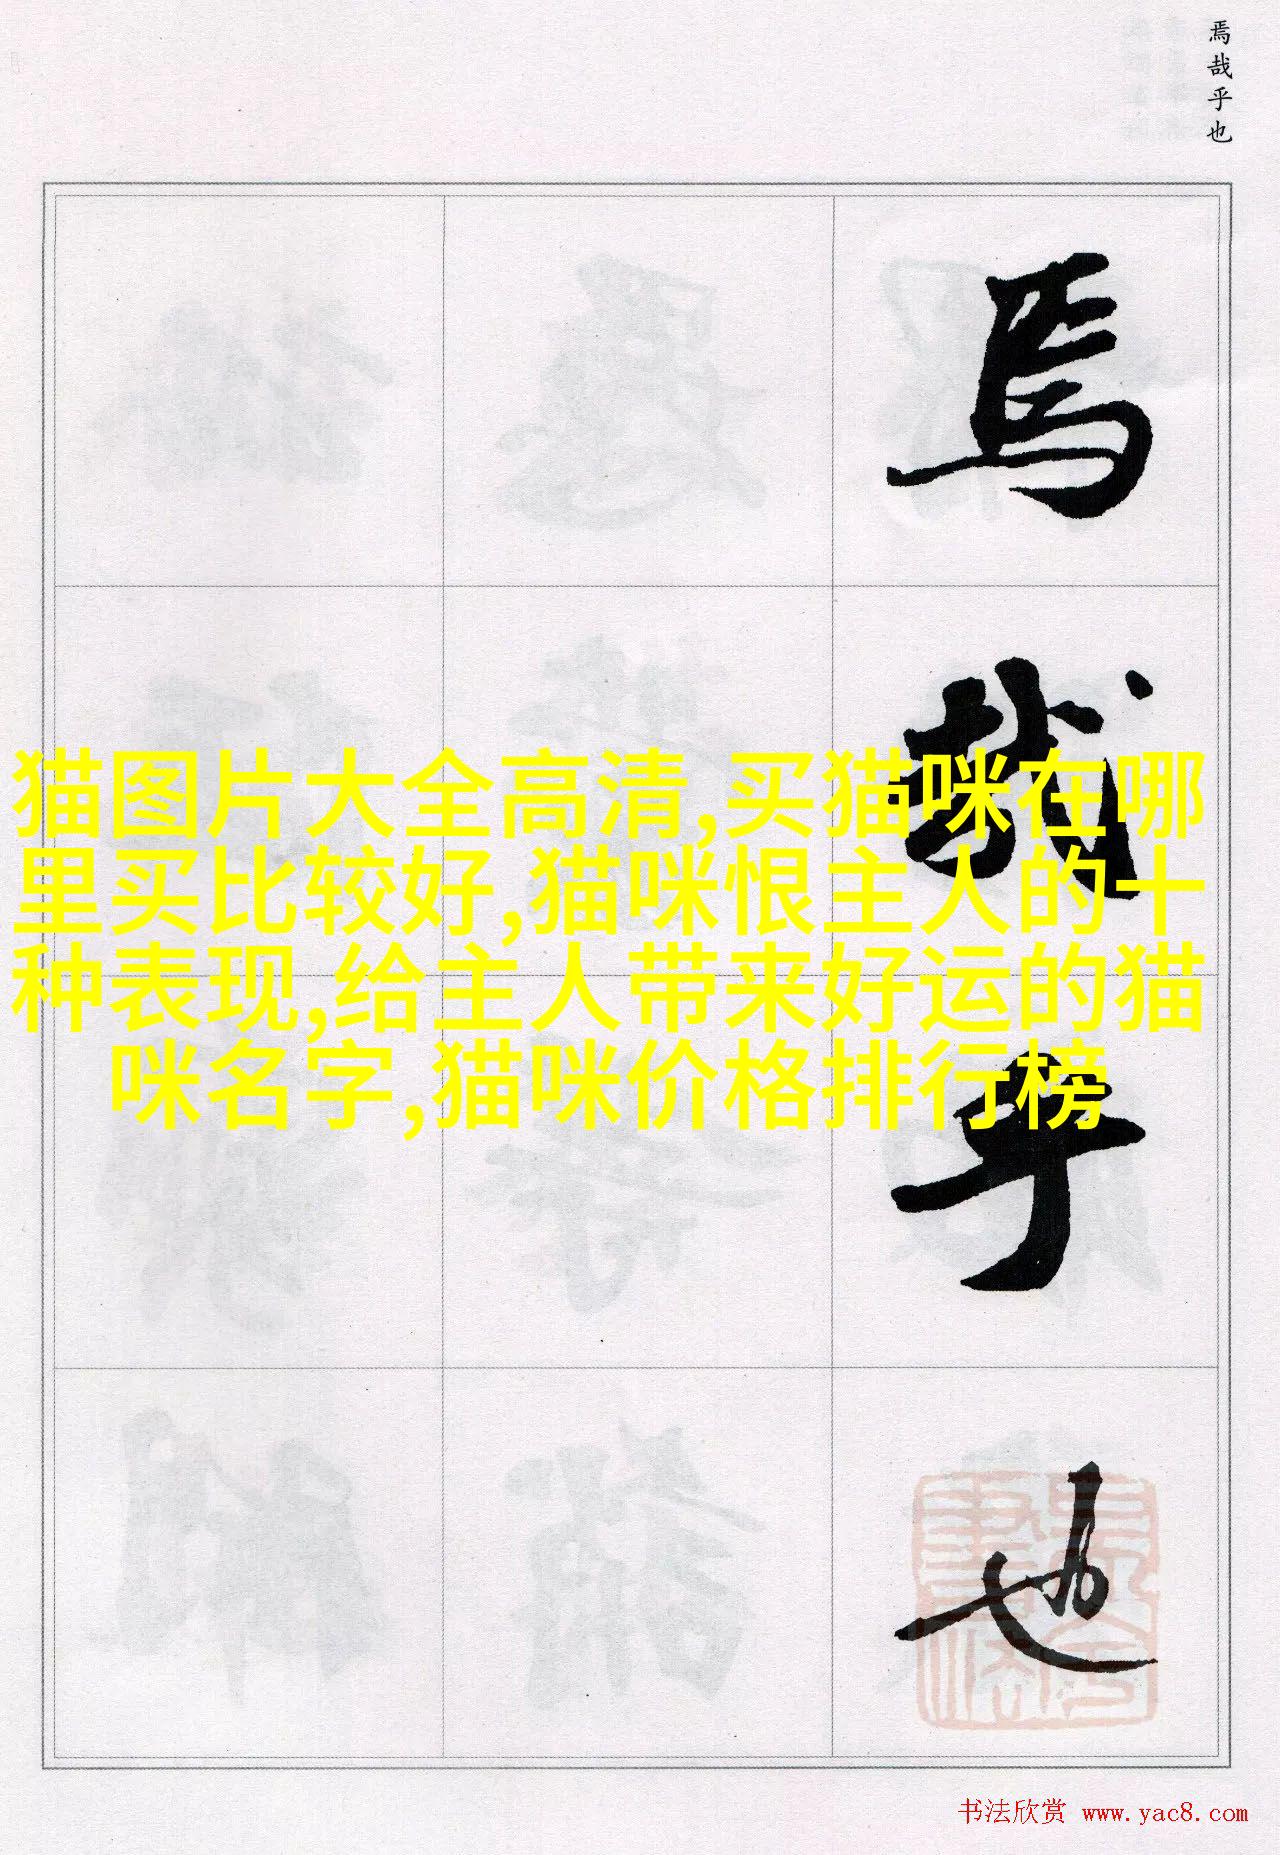 焉哉乎也
焉
哉
乎
也
猫图片大全高清,买猫咪在哪
里买比较好,猫咪恨主人的十
种表现,给主人带来好运的猫
咪名字,猫咪价格排行榜
书法欣赏 www.yac8.com